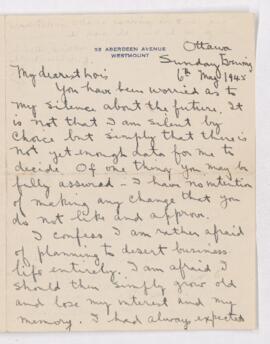 53 ABERDEEN AVENUE
WESTMOUNT
Ottawa
Sunday Evening
6th May 1945
My dearest Lois
You have been worried as to
my silence about the future. It
is not that I am silent by
choice but simply that there is
not yet enough data for me to
decide. Of one thing you may be
fully assured - I have no intention
of making any change that you
do not like and approve.
I confess I am rather afraid
of planning to desert business
life entirely. I am afraid I
should then simply grow old
and lose my interest and my
memory. I had always expected